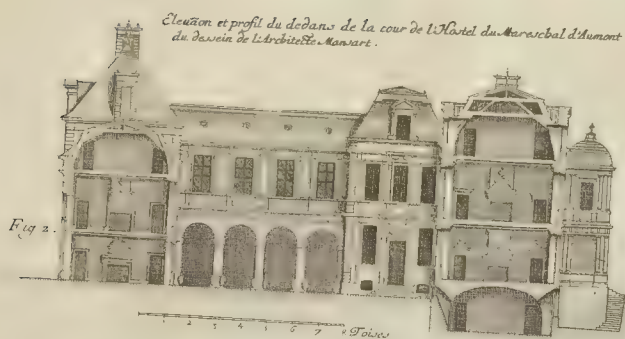 Elevãon et profil du dedans de la cour de l'Hostel du Mareschal d'Aumont
du dessein de l'Architecte Mansart.
Fig 2.
1 2 3 4 5 6 7 8 Toises